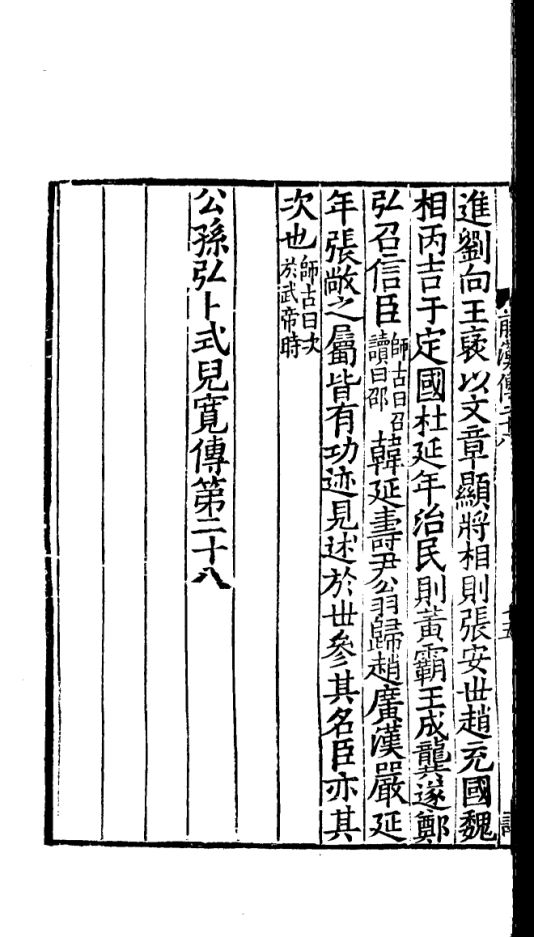 前漢傳二十八
十五
進劉向王襃以文章顯將相則張安世趙充國魏
相丙吉于定國杜延年治民則黃霸王成龔遂鄭
弘召信臣師古曰召讀曰邵韓延壽尹翁歸趙廣漢嚴延
年張敞之屬皆有功迹見述於世參其名臣亦其
次也師古曰次於武帝時
公孫弘卜式兒寬傳第二十八